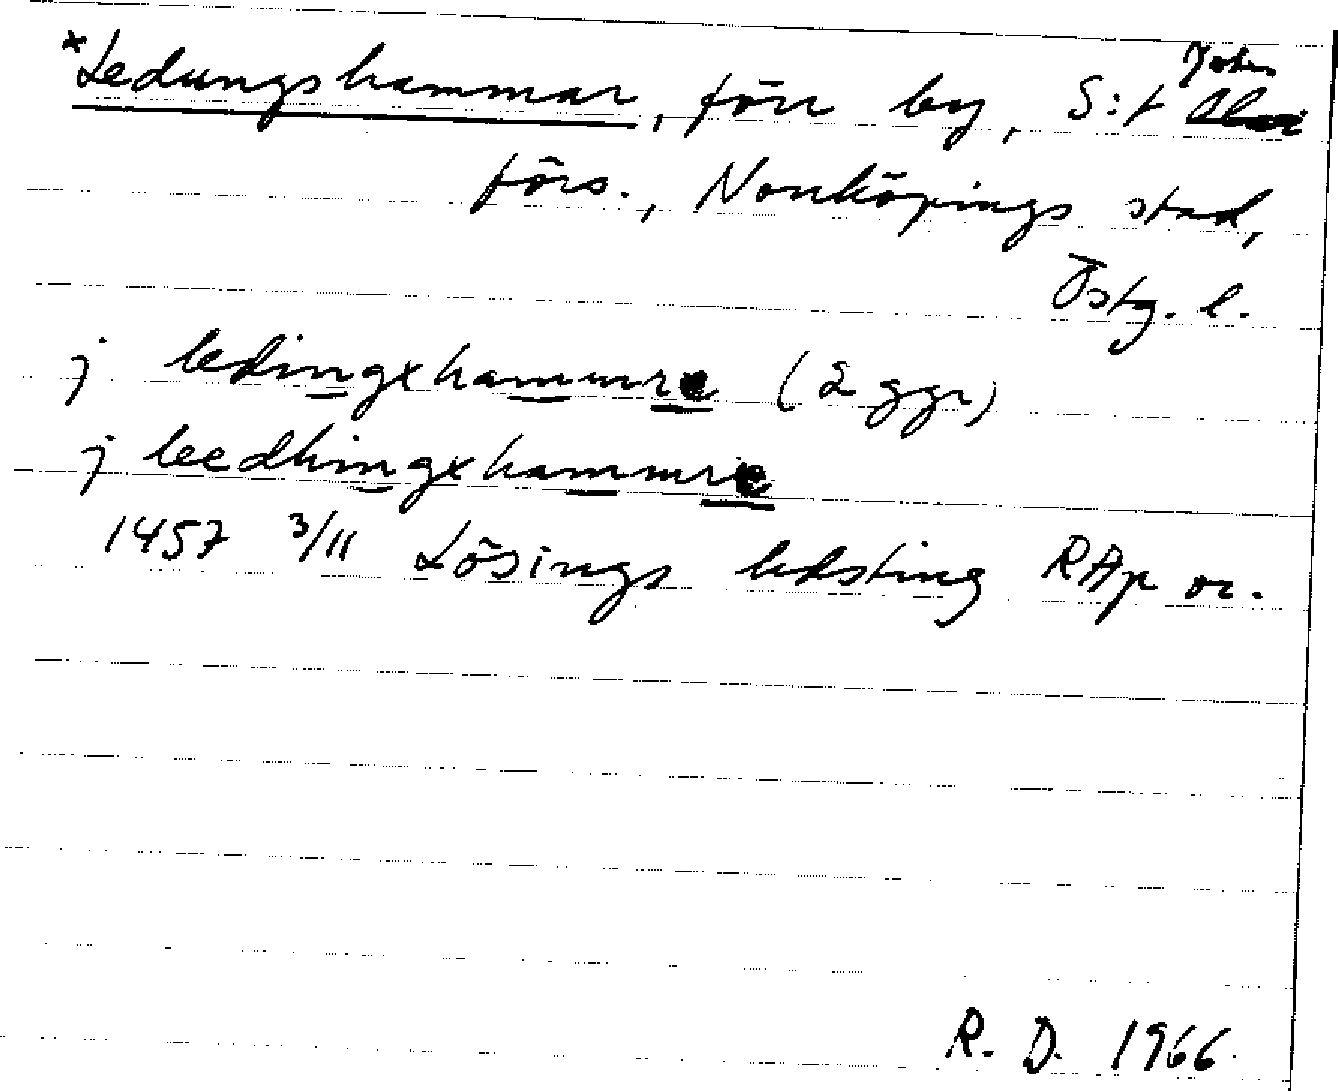 *Ledungshammar, förr by, S:t Johs
förs., Norrköpings stad,
Östg. l.
j ledingxhammre (2 ggr)
j leedhingxhammre
1457 3/11 Lösings hdsting RAp or.
R. D. 1966.